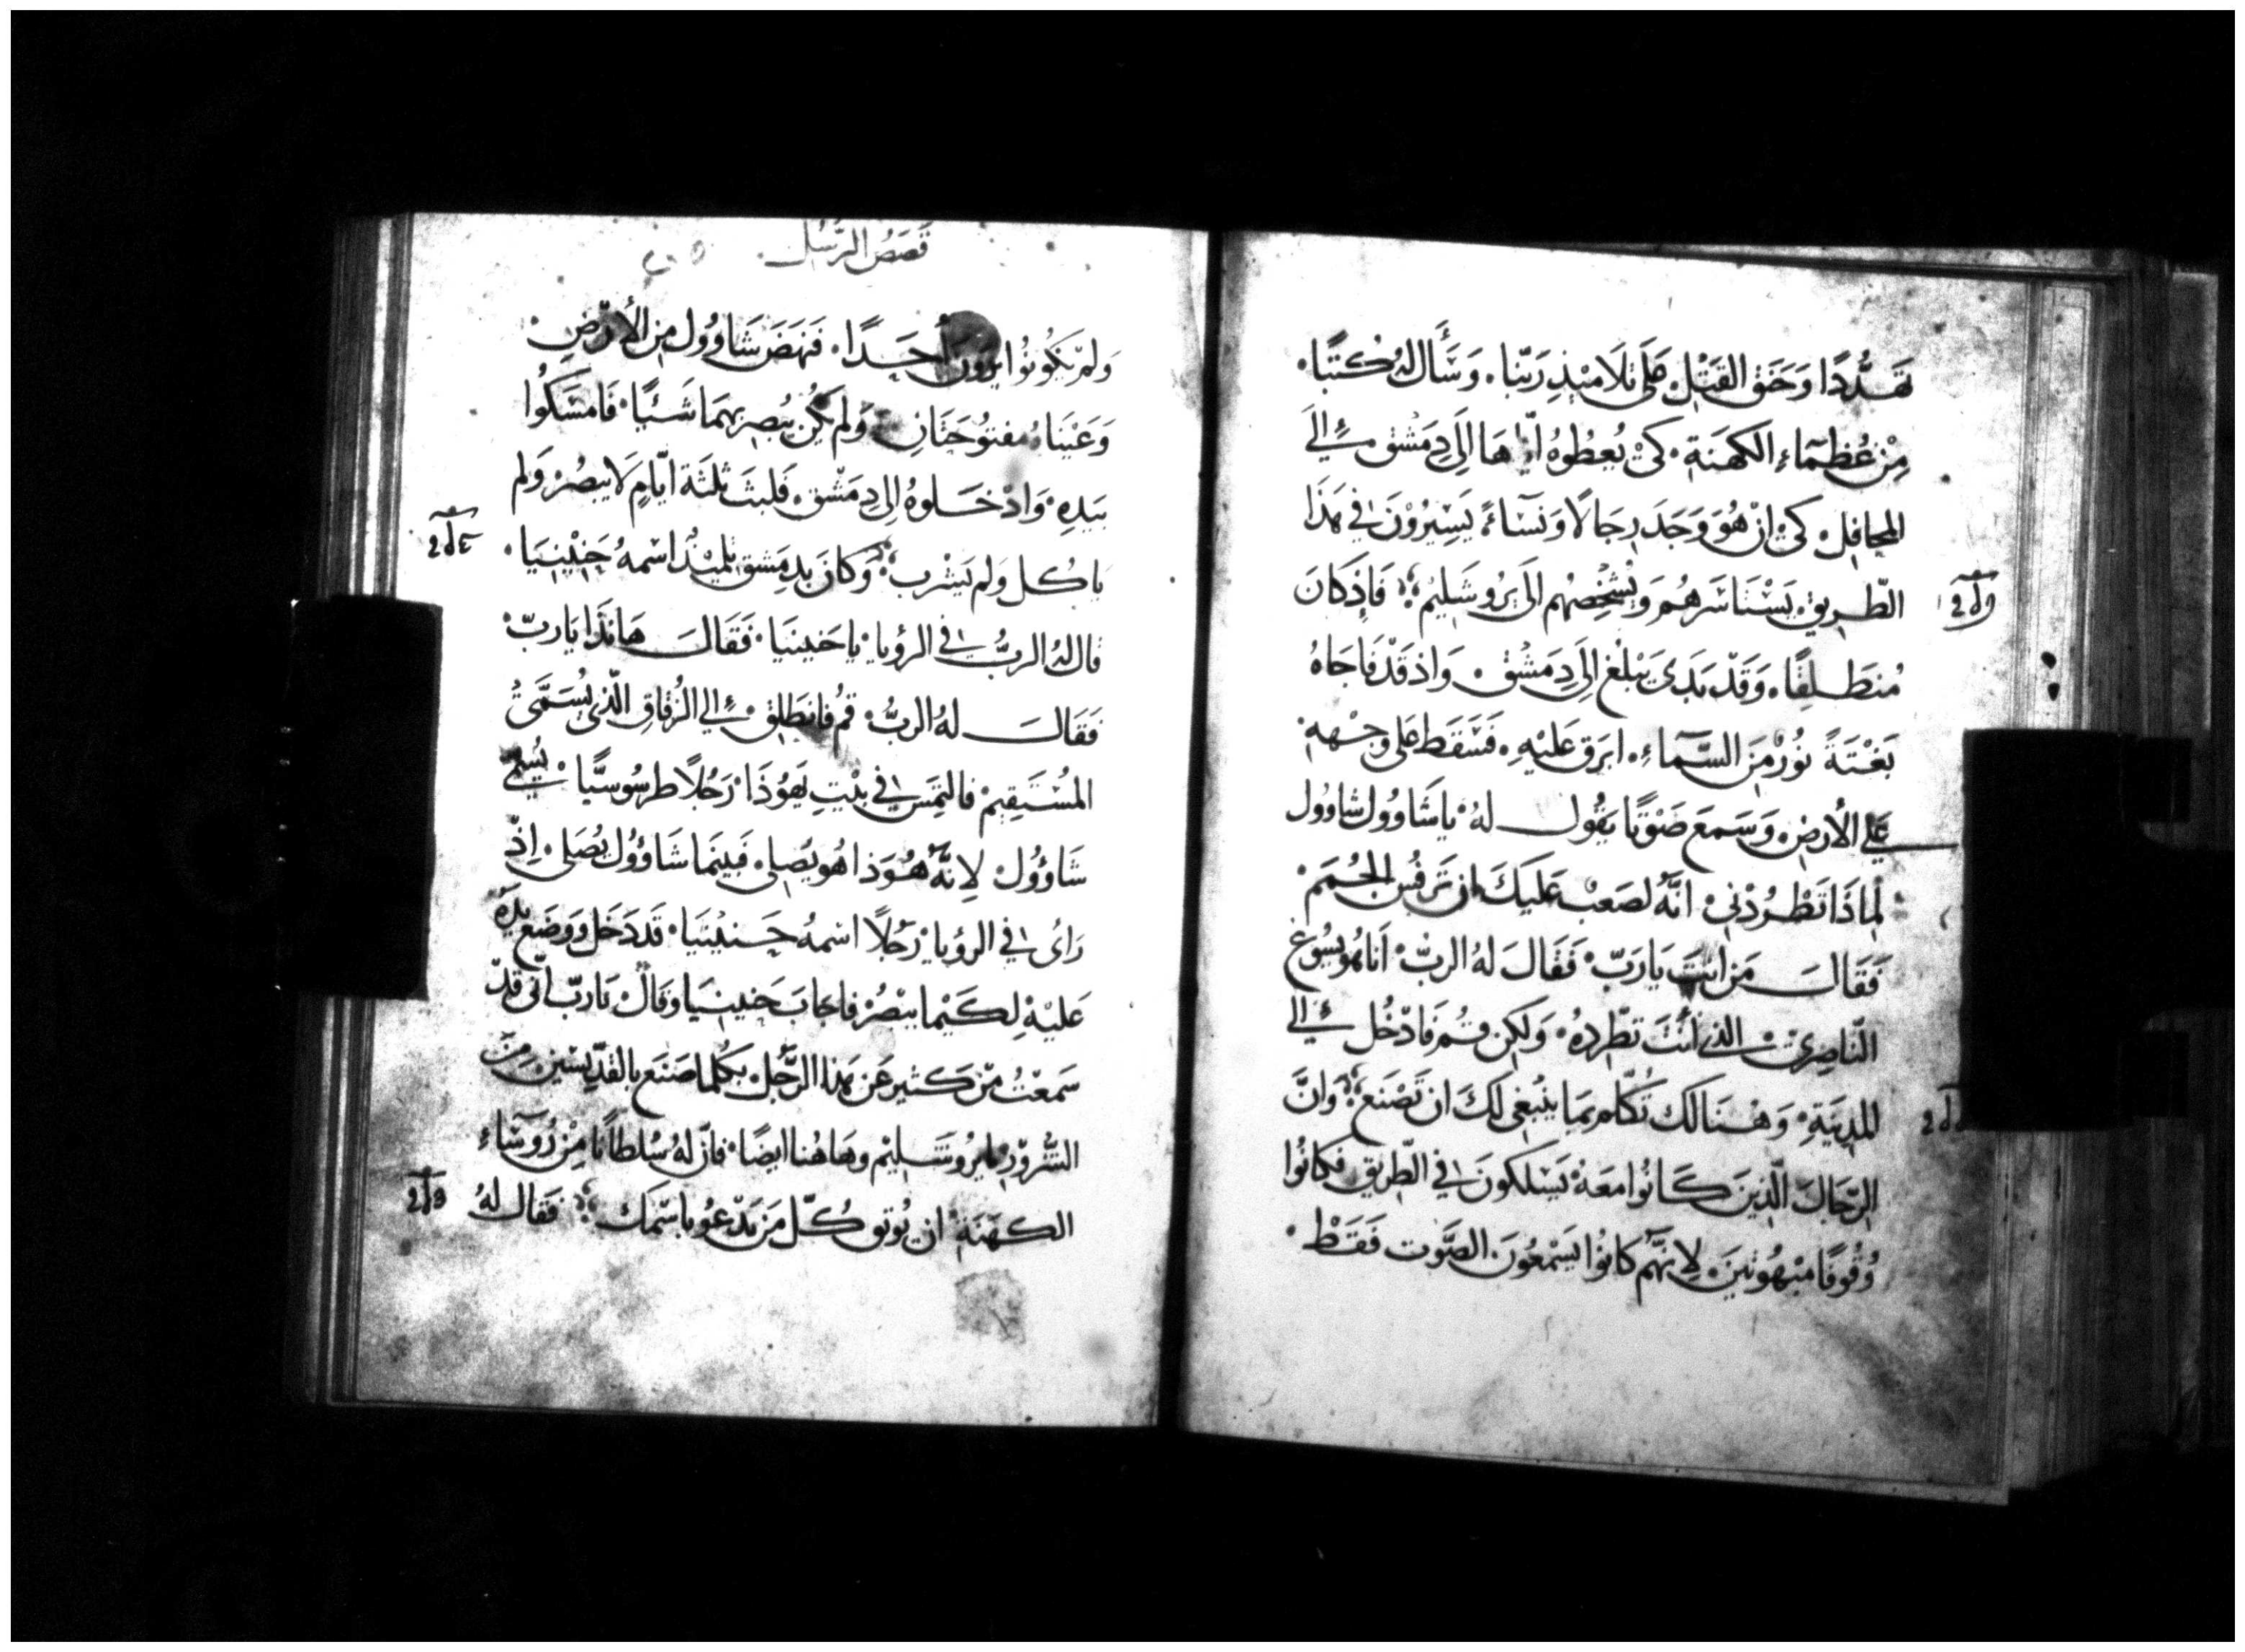 تهدّدًا وَحَنَق القَتْل عَلَى تَلَامِيْذِ رَبّنا. وَسَأَل لهُ كتبًا.
مِنْ عُظمَآء الكَهنَة. كَىْ يُعطُوهُ ايّاهَا اِلَى دِمَشق ئِلىَ
المحَافِل كىْ اِنْ هُوَ وَجَدَ رِجَالًا وَنسَآءً يَسِيرُوْنَ في هَذَا
الطّريق يَسْتَاسَرهُم وَيُشْخِصُهُم الىَ يرُوشَلِيْم؛ فَإِذ كَانَ
مُنطَلِقًا. وَقَدْ بَدَى يَبْلُغ اِلَى دِمَشْق. وَاذ قَدْ فَاجَاهُ
بَغْتَةً نُورٌ مِنَ السَّمآءِ. ابرَق عَلَيْهِ. فَسَقَطَ عَلى وَجْههِ
عَلي الأرض. وَسَمِعَ صَوْتًا يَقُول لهُ يا شَاوُول شاوُول
لِماذَا تَطْرُدْنِي انّهُ لصَعب عَلَيكَ ان تَرفُس المِجْمَم
فَقَالَ مَن انتَ يَارَبّ فَقَالَ لهُ الربّ أَنا هُو يسُوع
النّاصِرىّ الذي أَنْتَ تطْردهُ. وَلكِن قُم فَادْخُل ئِلى
المدِينَةِ وَهُنَالكَ تُكَلّم بمَا يَنْبَغِى لكَ ان تَصْنَع؛ وَانَّ
الرّجَالَ الّذِينَ كَانُوا مَعَهُ يَسْلكونَ في الطّريق فكَانُوا
وُقُوفًا مبْهُوتينَ. لِانهُّم كانُوا يَسْمعُونَ الصَّوت فَقَطْ.
قَصَصُ الرّسُل
وَلَم يَكُونوُا يرَوْن أَحَدًا. فَنَهَضَ شَاوُول مِن الأرْضِ
وَعَيْنَاهُ مفتوُحَتَانِ وَلم يَكُن يُبصِر بهمَا شَئًا. فَامسَكُوا
بيَدِهِ وَادْخَلوهُ الى دِمَشْق. فَلبث ثلثَة ايّامٍ لَا يبصُر وَلم
ياكُل وَلم يَشرب؛ وَكانَ بدِمَشق تلميْذ اسْمهُ حَنِيْنيَا.
قال لهُ الربُّ في الرؤيا يا حَنينيَا. فَقَالَ هَا نَذَا يَاربّ
فَقَالَ لهُ الربُّ قُم فانطَلِق ئِلى الزُقاقِ الّذى يُسَمَّىَ
المُسْتَقِيم فالتمِس في بيْتِ يَهُوُذَا رَجُلًا طرسُوسيًّا يُسمّى
شَاؤُول لِانّهُ هُوَذا هُو يُصلى. فَبينَما شَاؤُول يُصَلى. اِذْ
رَأى في الرؤيا رَجُلًا اسْمهُ حَنيْنيَا قَد دَخَل وَوَضَع يدهُ
عَليْهِ لِكَيْما يبْصُر فاجَابَ حَنينيَا وَقَالَ يَاربّ انّى قَدْ
سَمعْتُ مِنْ كَثير عَن هَذا الرَّجُل بكُلما صَنَع بالقدّيسْين مِنَ
الشُّرورِ بيرُوشَليْم وهَاهُنا ايضًا. فانّ لهُ سُلطَانًا مِنْ رُوسَآء
الكهَنَةِ ان يُوتق كُلّ مَن يَدْعُو باسْمكَ؛ فقَال لهُ